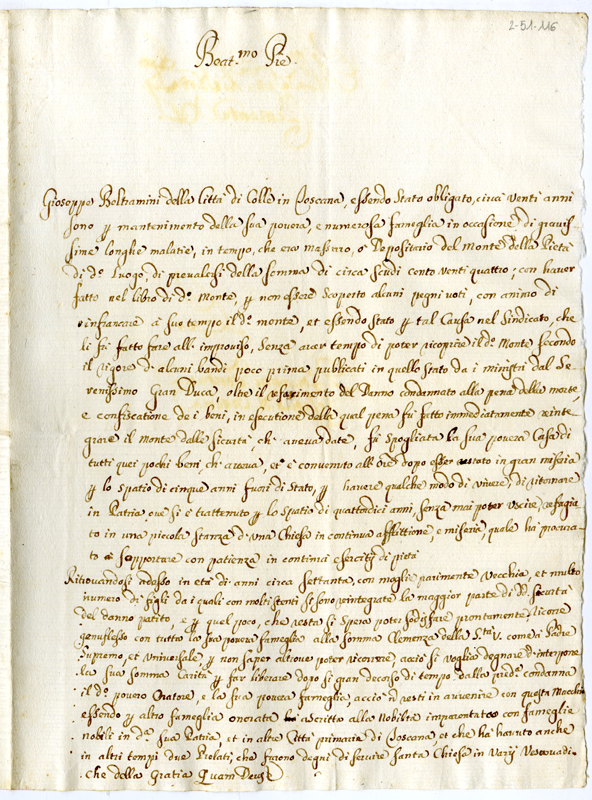 2-51-116
Beat.mo Pre.
Gioseppe Beltramini della Città di Colle in Toscana, essendo stato obligato, circa venti anni
sono p mantenimento della sua povera, e numerosa fameglia in occasione di gravis-
sime longhe malatie, in tempo, che era massaro, ò Depositario del Monte della Pietà
di d.o Luogo, di prevalersi della somma di circa scudi cento venti quattro; con haver
fatto nel libro di d.o Monte, p non essere scoperto alcuni pegni voti, con animo di
rinfrancare à suo tempo il d.o monte, et essendo stato p tal Causa nel Sindicato, che
li fù fatto fare all'improviso, senza aver tempo di poter ricoprire il d.o Monte secondo
il rigore d'alcuni bandi poco prima publicati in quello stato da i ministri dal Se-
renissimo Gran Duca, oltre il refarimento del Danno condannato alla pena della morte,
e confiscatione de i beni, in esecutione della qual pena fù fatto immediatamente reinte-
grare il Monte dalle sicurtà, ch'aneva date, fù spogliata la sua povera Casa di
tutti quei pochi beni, ch'aveva, et è convenuto all'Ore dopo esser stato in gran miseria
p lo spatio di cinque anni fuori di stato, p havere qualche modo di vivere, di ritornare
in Patria, ove si è trattenuto p lo spatio di quattordici anni, senza mai poter uscire, refugia-
to in una piccola stanza d'una Chiesa in continua afflittione, e miserie, quale ha procura-
to di sopportare con patienza in continui esercitij di pietà
Ritrovandosi adesso in età di anni circa settanta, con moglie parimente vecchia, et molto
numero di figli da i quali con molti stenti si sono reintegrate la maggior parte di dd. sicurtà
del danno patito, e p quel poco, che resta si spera poter sodisfare prontamente, Ricorre
genuflesso con tutta la sua povera fameglia alla somma Clemenza della S.tà V. come à Padre
Supremo, et Universale, p non saper altrove poter ricorrere, acciò si voglia degnare d'interporre
la sua somma Carità p far liberare dopo sì gran decorso di tempo dalla pred.a condanna
il d.o povero Oratore, e la sua povera fameglia, acciò ñ resti in avvenire con questa Macchia
essendo p altro fameglia onorata ascritta alla Nobiltà imparentata con fameglie
nobili in d.a sua Patria, et in altre Città primarie di Toscana, et che hà havuto anche
in altri tempi due Prelati, che furono degni di servire Santa Chiesa in varij Vescovadi.
Che della gratia Quam Deus &